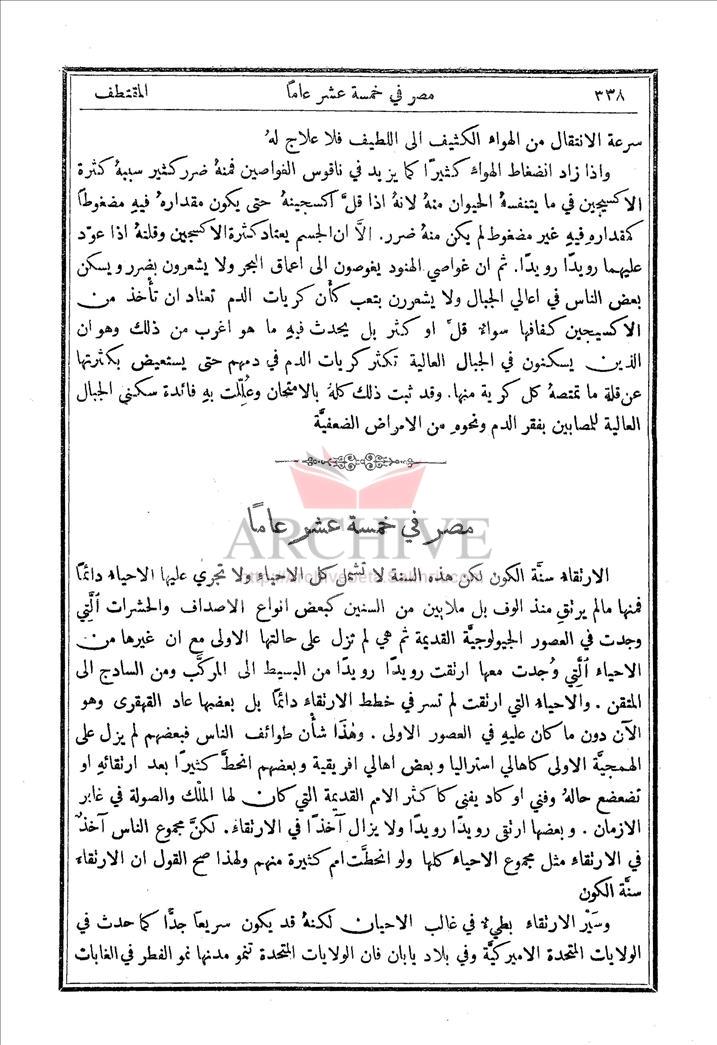 ٣٣٨ مصر في خمسة عشر عامًا المقتطف
سرعة الانتقال من الهواء الكثيف الى اللطيف فلا علاج لهُ
واذا زاد انضغاط الهواء كثيرًا كما يزيد في ناقوس الغواصين فمنهُ ضرر كثير سببهُ كثرة
الاكسجين في ما يتنفسهُ الحيوان منهُ لانهُ اذا قلَّ اكسجينهُ حتى يكون مقدارهُ فيهِ مضغوطًا
كمقدارهِ فيهِ غير مضغوط لم يكن منهُ ضرر. الاَّ ان الجسم يعتاد كثرة الاكسجين وقلتهُ اذا عوّد
عليهما رويدًا رويدًا. ثم ان غواصي الهنود يغوصون الى اعماق البحر ولا يشعرون بضرر ويسكن
بعض الناس في اعالي الجبال ولا يشعررن بتعب كأن كريات الدم تعتاد ان تأخذ من
الاكسيجين كفافها سواءٌ قلَّ او كثر بل يحدث فيهِ ما هو اغرب من ذلك وهو ان
الذين يسكنون في الجبال العالية تكثر كريات الدم في دمهم حتى يستعيض بكثرتها
عن قلة ما تمتصهُ كل كرية منها. وقد ثبت ذلك كلهُ بالامتحان وعُلِّلت بهِ فائدة سكنى الجبال
العالية للمصابين بفقر الدم ونحوهِ من الامراض الضعفيَّة
ARCHIVE
مصر في خمسة عشر عامًا
الارتقاء سنَّة الكون لكن هذه السنة لا تشمل كل الاحياء ولا تجري عليها الاحياء دائمًا
فمنها مالم يرتقِ منذ الوف بل ملايين من السنين كبعض انواع الاصداف والحشرات الَّتي
وجدت في العصور الجيولوجيَّة القديمة ثم هي لم تزل على حالتها الاولى مع ان غيرها من
الاحياء الَّتي وُجدت معها ارتقت رويدًا رويدًا من البسيط الى المركَّب ومن السادج الى
المتقن. والاحياء التي ارتقت لم تسر في خطط الارتقاء دائمًا بل بعضها عاد القهقرى وهو
الآن دون ما كان عليهِ في العصور الاولى. وهٰذَا شأن طوائف الناس فبعضهم لم يزل على
الهمجيَّة الاولى كاهالي استراليا وبعض اهالي افريقية وبعضهم انحطَّ كثيرًا بعد ارتقائهِ او
تضعضع حالهُ وفني او كاد يفنى كاكثر الامم القديمة التي كان لها المُلْك والصولة في غابر
الازمان. وبعضها ارتقى رويدًا رويدًا ولا يزال آخذًا في الارتقاء. لكنَّ مجموع الناس آخذٌ
في الارتقاء مثل مجموع الاحياء كلها ولو انحطَّت امم كثيرة منهم ولهذا صح القول ان الارتقاء
سنَّة الكون
وسَيْر الارتقاء بطيءٌ في غالب الاحيان لكنهُ قد يكون سريعًا جدًّا كما حدث في
الولايات المتحدة الاميركيَّة وفي بلاد يابان فان الولايات المتحدة تنمو مدنها نمو الفطر في الغابات